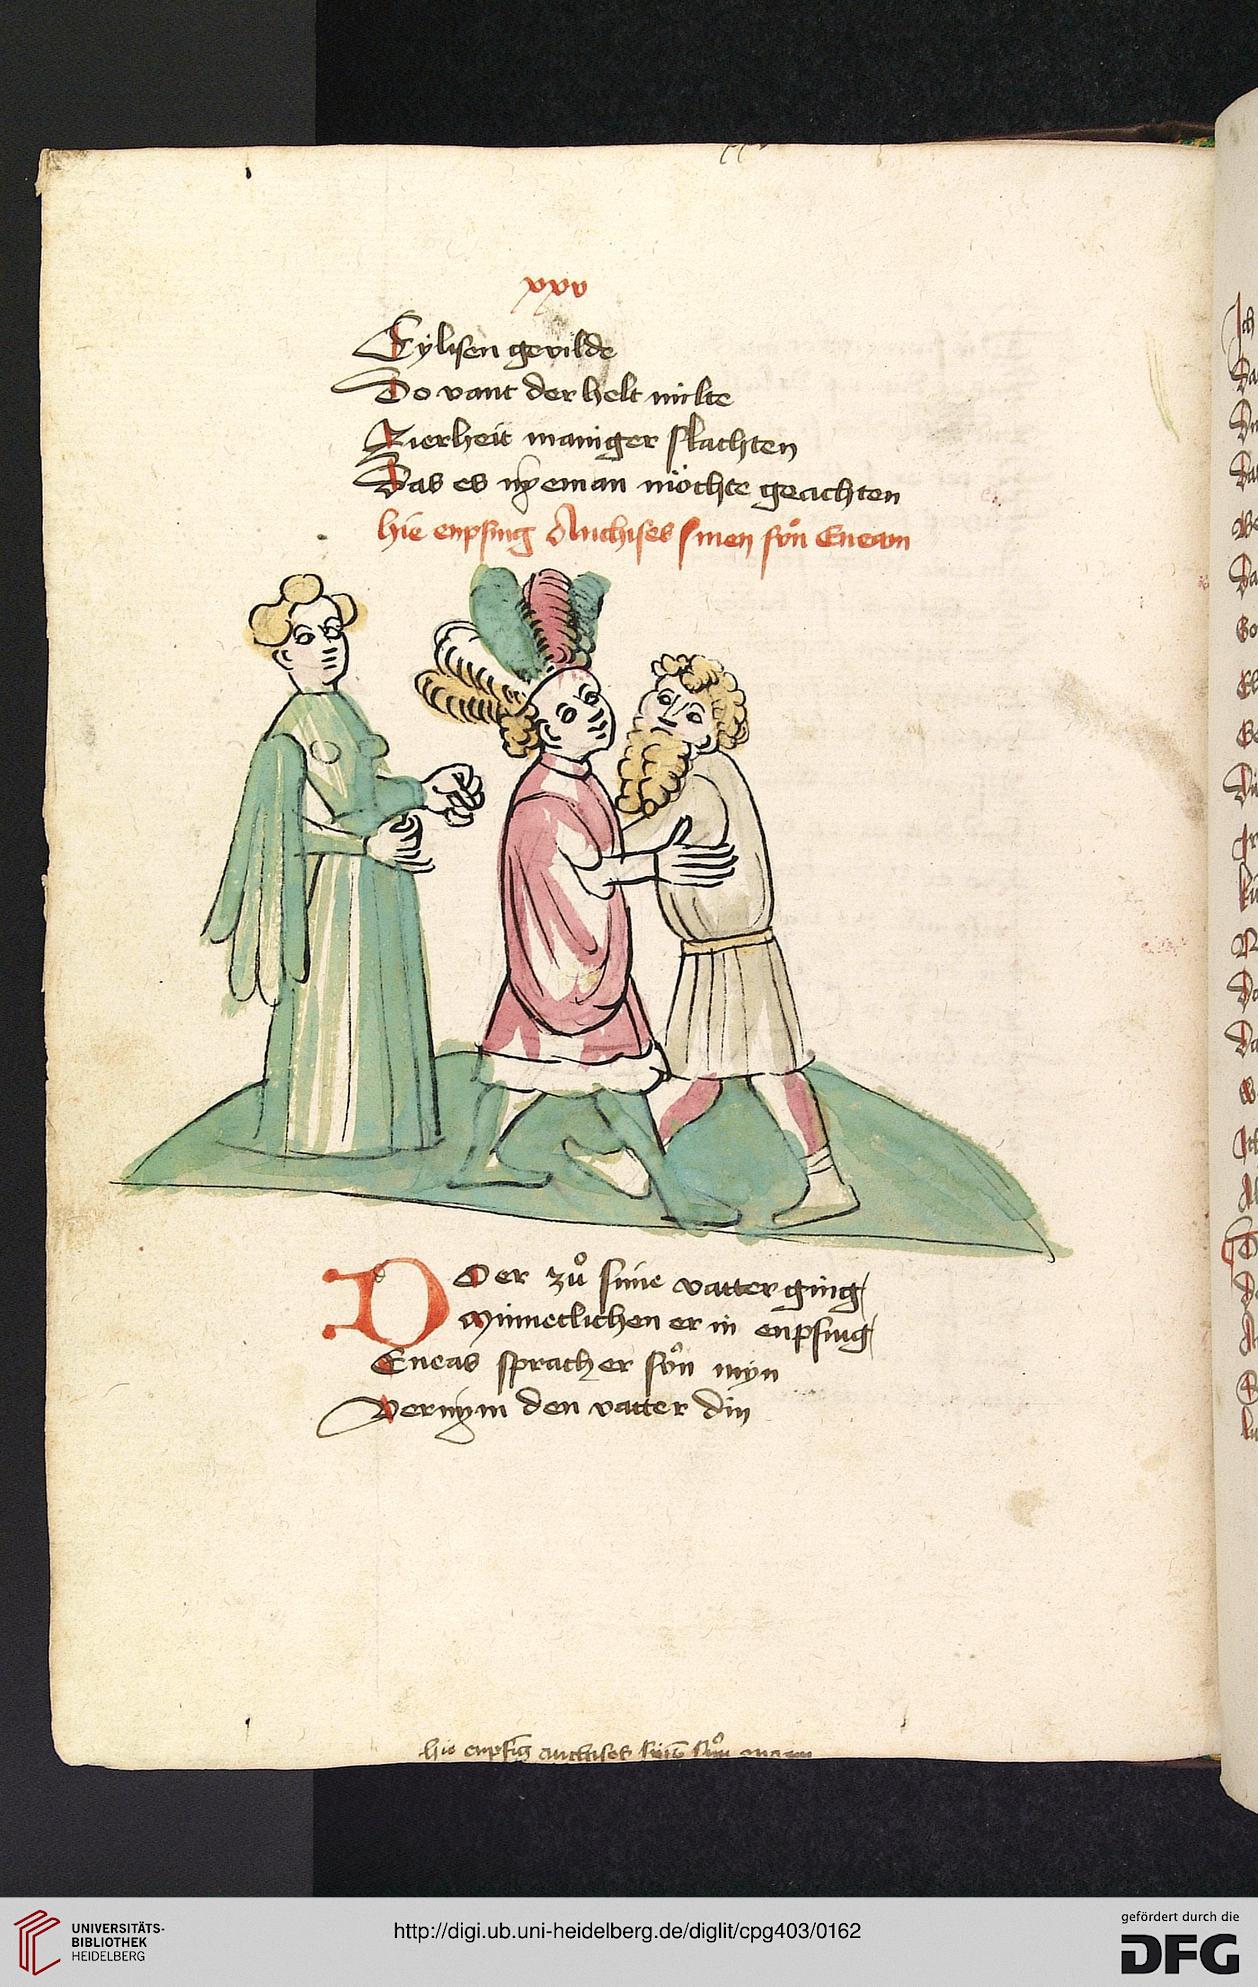 xxv
Eylisen gevilde
Do vant der helt milte
Zierheit maniger slachten
Das es nyeman möchte geachten
hie enpfing Anchises sinen son Eneam
Do er zuͦ sime vatter ging
Minneclichen er in enpfing
Eneas sprach er soͤn myn
Vernym den vatter din
hie enpfing anchises
UNIVERSITÄTS-
BIBLIOTHEK
HEIDELBERG
http://digi.ub.uni-heidelberg.de/diglit/cpg403/0162
gefördert durch die
DFG